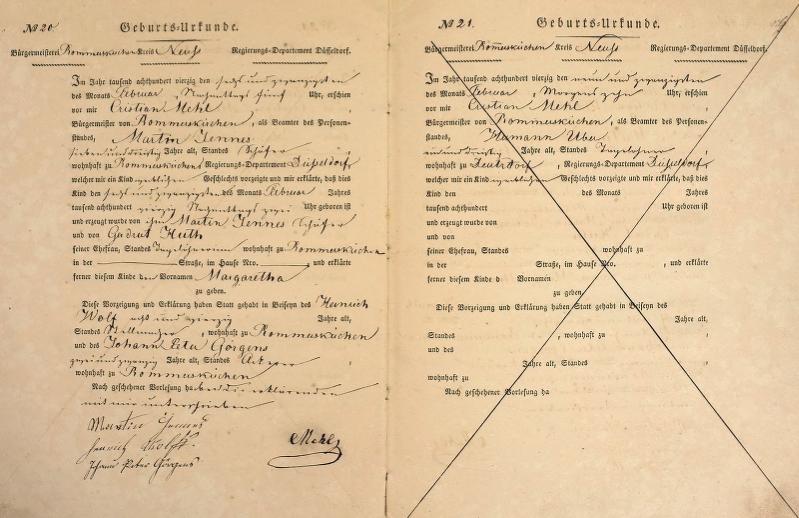 № 20.
Geburts-Urkunde.
Bürgermeisterei Rommerskirchen Kreis Neuss Regierungs-Departement Düsseldorf.
Im Jahr tausend achthundert vierzig den sechs und zwanzigsten
des Monats Februar, Nachmittags fünf Uhr, erschien
vor mir Cristian Mehl
Bürgermeister von Rommerskirchen, als Beamter des Personen-
standes, Martin Jennes
sieben und dreißig Jahre alt, Standes Schäfer,
wohnhaft zu Rommerskirchen Regierungs-Departement Düsseldorf,
welcher mir ein Kind weiblichen Geschlechts vorzeigte und mir erklärte, daß dies
Kind den sechs und zwanzigsten des Monats Februar Jahres
tausend achthundert vierzig Nachmittags zwei Uhr geboren ist
und erzeugt wurde von ihm Martin Jennes Schäfer
und von Gudrut Huth
seiner Ehefrau, Standes Tagelöhnerinn wohnhaft zu Rommerskirchen
in der Straße, im Hause Nro. , und erklärte
ferner diesem Kinde den Vornamen Margaretha
zu geben.
Diese Vorzeigung und Erklärung haben Statt gehabt in Beiseyn des Heinrich
Wolf und vierzig Jahre alt,
Standes , wohnhaft zu Rommerskirchen
und des Johann Peter Görgens
zwei und zwanzig Jahre alt, Standes Ackerer,
wohnhaft zu Rommerskirchen
Nach geschehener Vorlesung haben die erklärenden
mit mir unterschrieben
Martin Jennes
Henrich Wolff.
Johann Peter Görgens
CMehl
№ 21.
Geburts-Urkunde.
Bürgermeisterei Rommerskirchen Kreis Neuss Regierungs-Departement Düsseldorf.
Im Jahr tausend achthundert vierzig den neun und zwanzigsten
des Monats Februar, Morgens zehn Uhr, erschien
vor mir Cristian Mehl,
Bürgermeister von Rommerskirchen, als Beamter des Personen-
standes, Hermann
ein und dreißig Jahre alt, Standes Tagelöhner,
wohnhaft zu , Regierungs-Departement Düsseldorf,
welcher mir ein Kind weiblichen Geschlechts vorzeigte und mir erklärte, daß dies
Kind den des Monats Jahres
tausend achthundert Uhr geboren ist
und erzeugt wurde von
und von
seiner Ehefrau, Standes wohnhaft zu
in der Straße, im Hause Nro. , und erklärte
ferner diesem Kinde d Vornamen
zu geben.
Diese Vorzeigung und Erklärung haben Statt gehabt in Beiseyn des
Jahre alt,
Standes , wohnhaft zu
und des
Jahre alt, Standes
wohnhaft zu
Nach geschehener Vorlesung ha